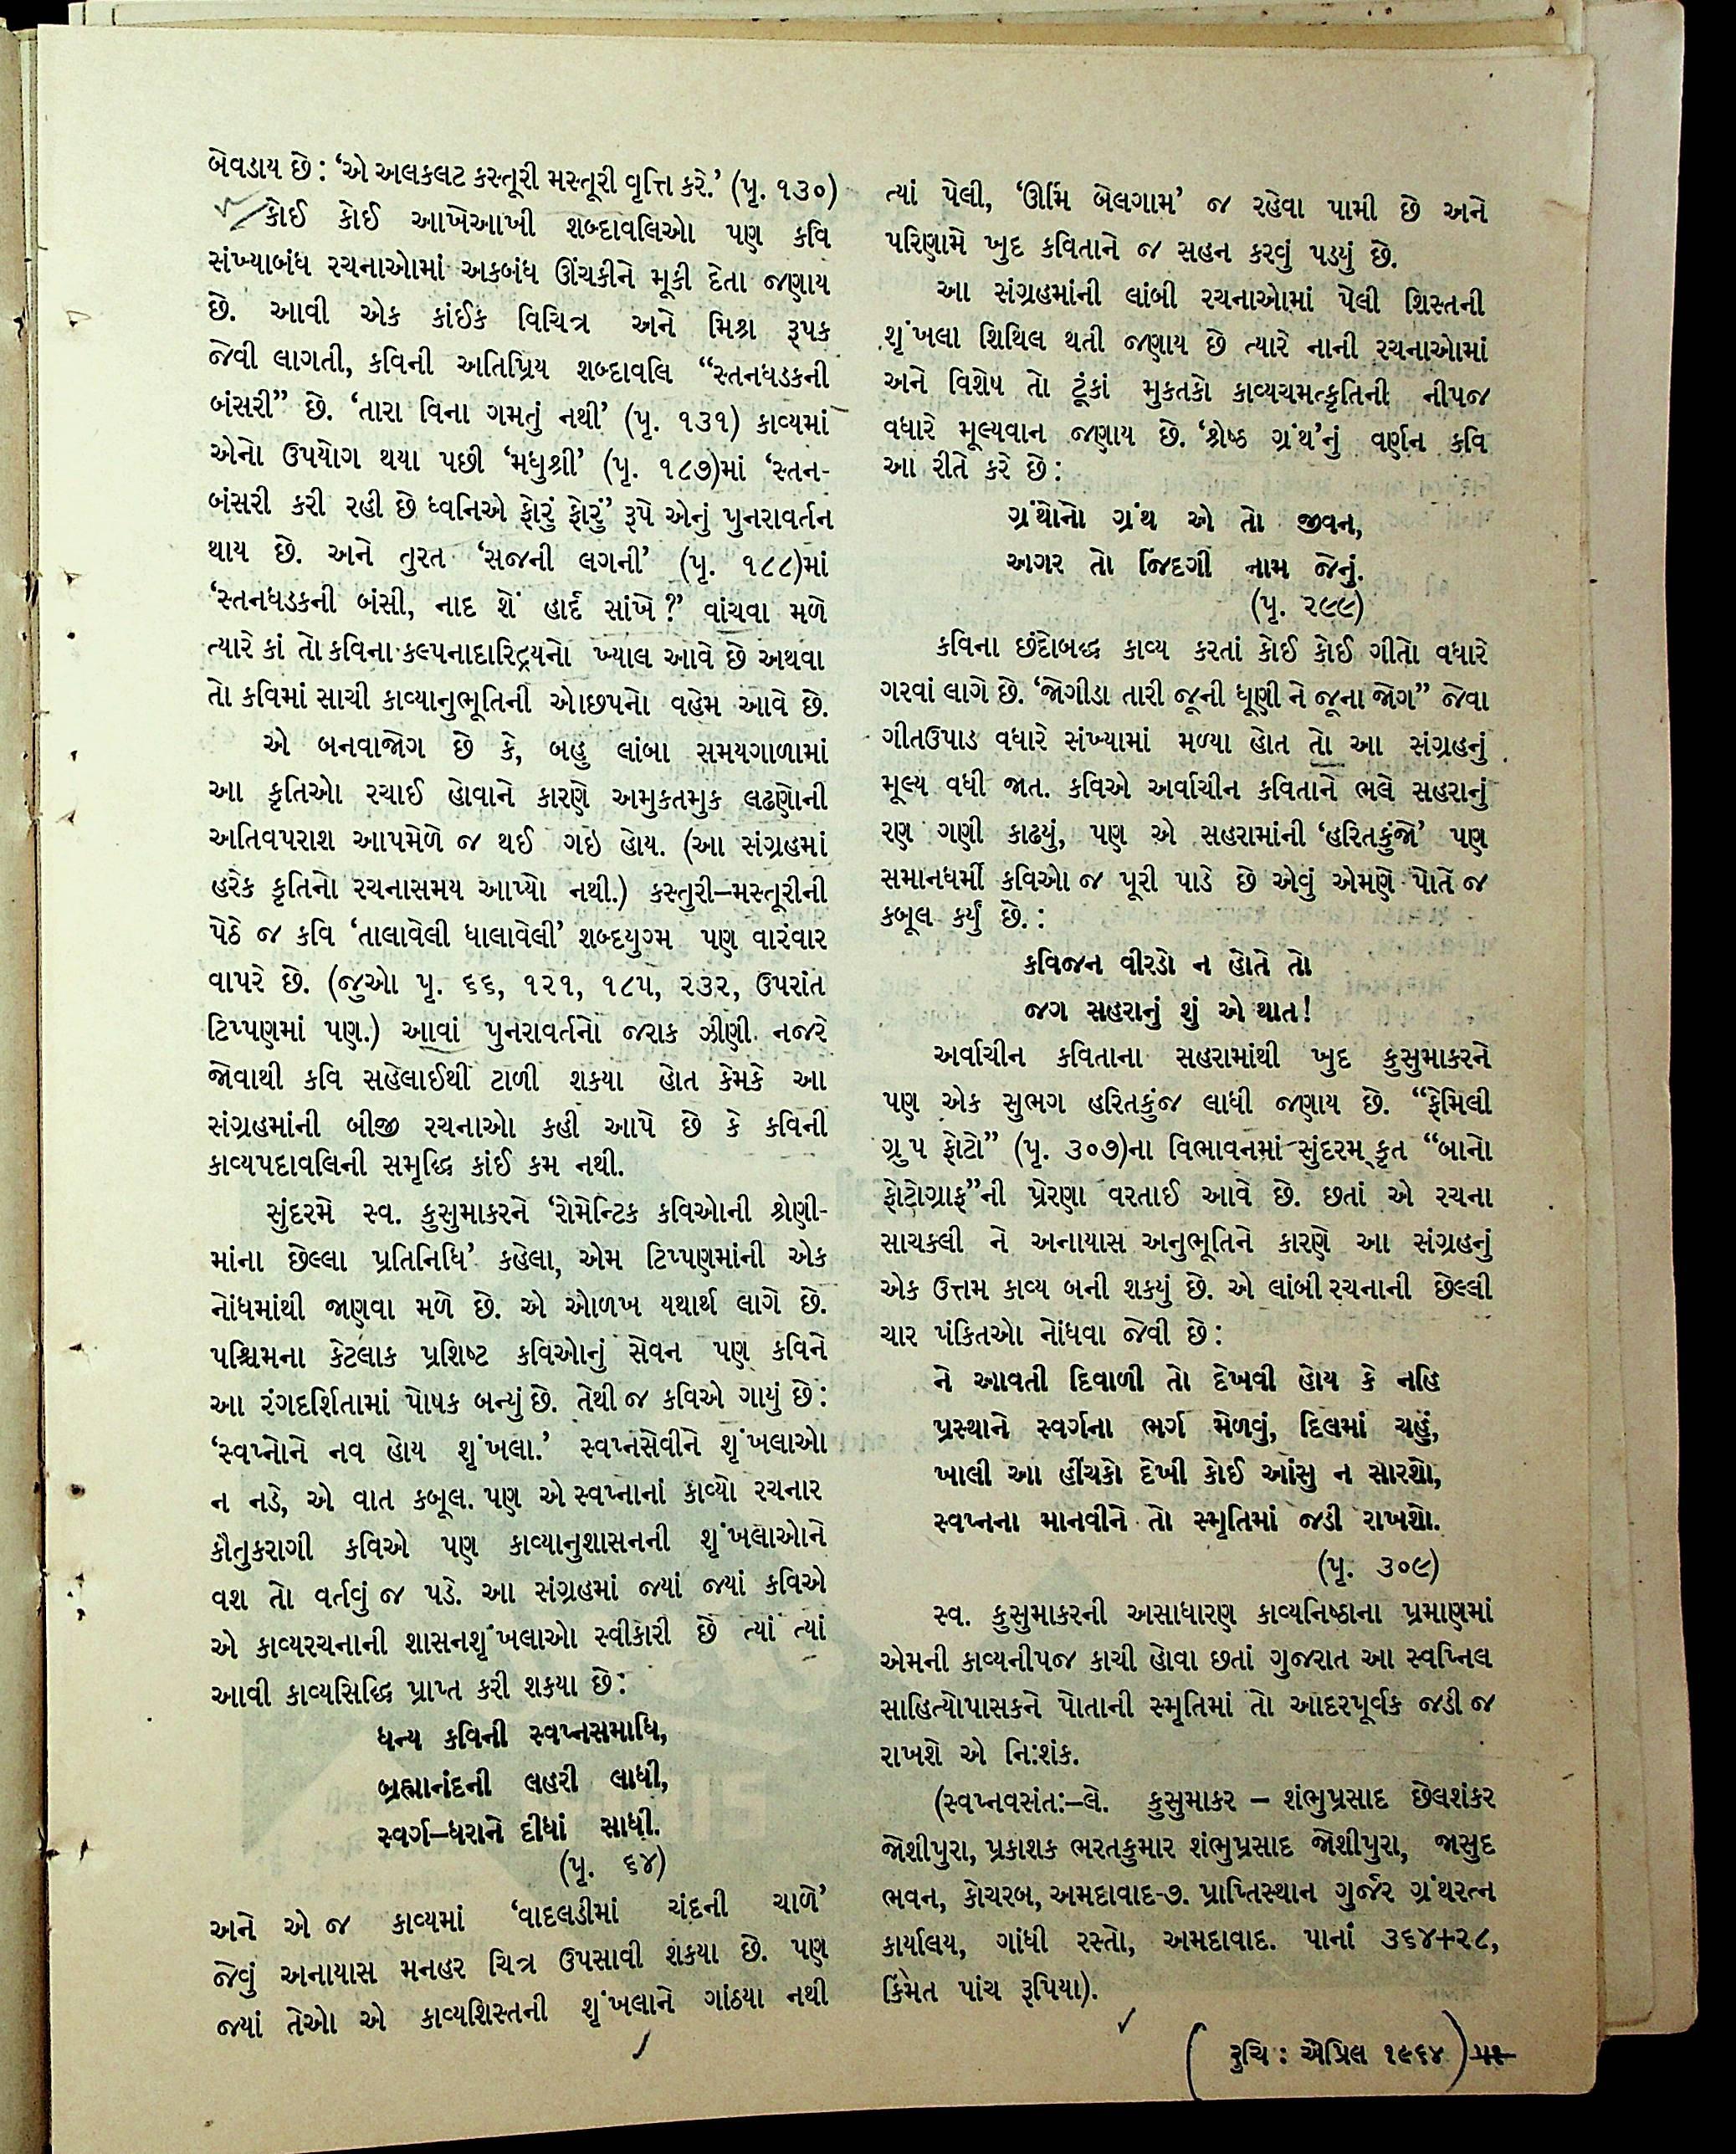 બેવડાય છે: ‘એ અલકલટ કસ્તૂરી મસ્તૂરી વૃત્તિ કરે.’ (પૃ. ૧૩૦)
કોઈ કોઈ આખેઆખી શબ્દાવલિઓ પણ કવિ
સંખ્યાબંધ રચનાઓમાં અકબંધ ઊંચકીને મૂકી દેતા જણાય
છે. આવી એક કાંઈક વિચિત્ર અને મિશ્ર રૂપક
જેવી લાગતી, કવિની અતિપ્રિય શબ્દાવલિ “સ્તનધડકની
બંસરી” છે. ‘તારા વિના ગમતું નથી’ (પૃ. ૧૩૧) કાવ્યમાં
એનો ઉપયોગ થયા પછી ‘મધુશ્રી’ (પૃ. ૧૮૭)માં ‘સ્તન-
બંસરી કરી રહી છે ધ્વનિએ ફોરું ફોરું’ રૂપે એનું પુનરાવર્તન
થાય છે. અને તુરત ‘સજની લગની’ (પૃ. ૧૮૮)માં
‘સ્તનધડકની બંસી, નાદ શેં હાર્દ સાંખે ?’ વાંચવા મળે
ત્યારે કાં તો કવિના કલ્પનાદારિદ્રયનો ખ્યાલ આવે છે અથવા
તો કવિમાં સાચી કાવ્યાનુભૂતિની ઓછપનો વહેમ આવે છે.
એ બનવાજોગ છે કે, બહુ લાંબા સમયગાળામાં
આ કૃતિઓ રચાઈ હોવાને કારણે અમુકતમુક લઢણોની
અતિવપરાશ આપમેળે જ થઈ ગઇ હોય. (આ સંગ્રહમાં
હરેક કૃતિનો રચનાસમય આપ્યો નથી.) કસ્તુરી–મસ્તૂરીની
પેઠે જ કવિ ‘તાલાવેલી ધાલાવેલી’ શબ્દયુગ્મ પણ વારંવાર
વાપરે છે. (જુઓ પૃ. ૬૬, ૧૨૧, ૧૮૫, ૨૩૨, ઉપરાંત
ટિપ્પણમાં પણ.) આવાં પુનરાવર્તનો જરાક ઝીણી નજરે
જોવાથી કવિ સહેલાઈથી ટાળી શકયા હોત કેમકે આ
સંગ્રહમાંની બીજી રચનાઓ કહી આપે છે કે કવિની
કાવ્યપદાવલિની સમૃદ્ધિ કાંઈ કમ નથી.
સુંદરમે સ્વ. કુસુમાકરને ‘રોમેન્ટિક કવિઓની શ્રેણી-
માંના છેલ્લા પ્રતિનિધિ’ કહેલા, એમ ટિપ્પણમાંની એક
નોંધમાંથી જાણવા મળે છે. એ ઓળખ યથાર્થ લાગે છે.
પશ્ચિમના કેટલાક પ્રશિષ્ટ કવિઓનું સેવન પણ કવિને
આ રંગદર્શિતામાં પોષક બન્યું છે. તેથી જ કવિએ ગાયું છે:
‘સ્વપ્નોને નવ હોય શૃંખલા.’ સ્વપ્નસેવીને શૃંખલાઓ
ન નડે, એ વાત કબૂલ. પણ એ સ્વપ્નાનાં કાવ્યો રચનાર
કૌતુકરાગી કવિએ પણ કાવ્યાનુશાસનની શૃંખલાઓને
વશ તો વર્તવું જ પડે. આ સંગ્રહમાં જ્યાં જ્યાં કવિએ
એ કાવ્યરચનાની શાસનશૃંખલાઓ સ્વીકારી છે ત્યાં ત્યાં
આવી કાવ્યસિદ્ધિ પ્રાપ્ત કરી શકયા છે:
ધન્ય કવિની સ્વપ્નસમાધિ,
બ્રહ્માનંદની લહરી લાધી,
સ્વર્ગ–ધરાને દીધાં સાધી.
(પૃ. ૬૪)
અને એ જ કાવ્યમાં ‘વાદલડીમાં ચંદની ચાળે’
જેવું અનાયાસ મનહર ચિત્ર ઉપસાવી શકયા છે. પણ
જ્યાં તેઓ એ કાવ્યશિસ્તની શૃંખલાને ગાંઠયા નથી
ત્યાં પેલી, ‘ઊર્મિ બેલગામ’ જ રહેવા પામી છે અને
પરિણામે ખુદ કવિતાને જ સહન કરવું પડયું છે.
આ સંગ્રહમાંની લાંબી રચનાઓમાં પેલી શિસ્તની
શૃંખલા શિથિલ થતી જણાય છે ત્યારે નાની રચનાઓમાં
અને વિશેષ તો ટૂંકાં મુકતકો કાવ્યચમત્કૃતિની નીપજ
વધારે મૂલ્યવાન જણાય છે. ‘શ્રેષ્ઠ ગ્રંથ’નું વર્ણન કવિ
આ રીતે કરે છે:
ગ્રંથોનો ગ્રંથ એ તો જીવન,
અગર તો જિંદગી નામ જેનું.
(પૃ. ૨૯૯)
કવિના છંદોબદ્ધ કાવ્ય કરતાં કોઈ કોઈ ગીતો વધારે
ગરવાં લાગે છે. ‘જોગીડા તારી જૂની ધૂણી ને જૂના જોગ” જેવા
ગીતઉપાડ વધારે સંખ્યામાં મળ્યા હોત તો આ સંગ્રહનું
મૂલ્ય વધી જાત. કવિએ અર્વાચીન કવિતાને ભલે સહરાનું
રણ ગણી કાઢયું, પણ એ સહરામાંની ‘હરિતકુંજો’ પણ
સમાનધર્મી કવિઓ જ પૂરી પાડે છે એવું એમણે પોતે જ
કબૂલ કર્યું છે. :
કવિજન વીરડો ન હોતે તો
જગ સહરાનું શું એ થાત!
અર્વાચીન કવિતાના સહરામાંથી ખુદ કુસુમાકરને
પણ એક સુભગ હરિતકુંજ લાધી જણાય છે. “ફેમિલી
ગ્રુપ ફોટો” (પૃ. ૩૦૭)ના વિભાવનમાં સુંદરમ્ કૃત “બાનો
ફોટોગ્રાફ”ની પ્રેરણા વરતાઈ આવે છે. છતાં એ રચના
સાચકલી ને અનાયાસ અનુભૂતિને કારણે આ સંગ્રહનું
એક ઉત્તમ કાવ્ય બની શકયું છે. એ લાંબી રચનાની છેલ્લી
ચાર પંકિતઓ નોંધવા જેવી છે:
ને આવતી દિવાળી તો દેખવી હોય કે નહિ
પ્રસ્થાને સ્વર્ગના ભર્ગ મેળવું, દિલમાં ચહું,
ખાલી આ હીંચકો દેખી કોઈ આંસુ ન સારશો,
સ્વપ્નના માનવીને તો સ્મૃતિમાં જડી રાખશો.
(પૃ. ૩૦૯)
સ્વ. કુસુમાકરની અસાધારણ કાવ્યનિષ્ઠાના પ્રમાણમાં
એમની કાવ્યનીપજ કાચી હોવા છતાં ગુજરાત આ સ્વપ્નિલ
સાહિત્યોપાસકને પોતાની સ્મૃતિમાં તો આદરપૂર્વક જડી જ
રાખશે એ નિઃશંક.
(સ્વપ્નવસંત:–લે. કુસુમાકર – શંભુપ્રસાદ છેલશંકર
જોશીપુરા, પ્રકાશક ભરતકુમાર શંભુપ્રસાદ જોશીપુરા, જાસુદ
ભવન, કોચરબ, અમદાવાદ-૭. પ્રાપ્તિસ્થાન ગુર્જર ગ્રંથરત્ન
કાર્યાલય, ગાંધી રસ્તો, અમદાવાદ. પાનાં ૩૬૪+૨૮,
કિંમત પાંચ રૂપિયા).
(રુચિ : એપ્રિલ ૧૯૬૪)